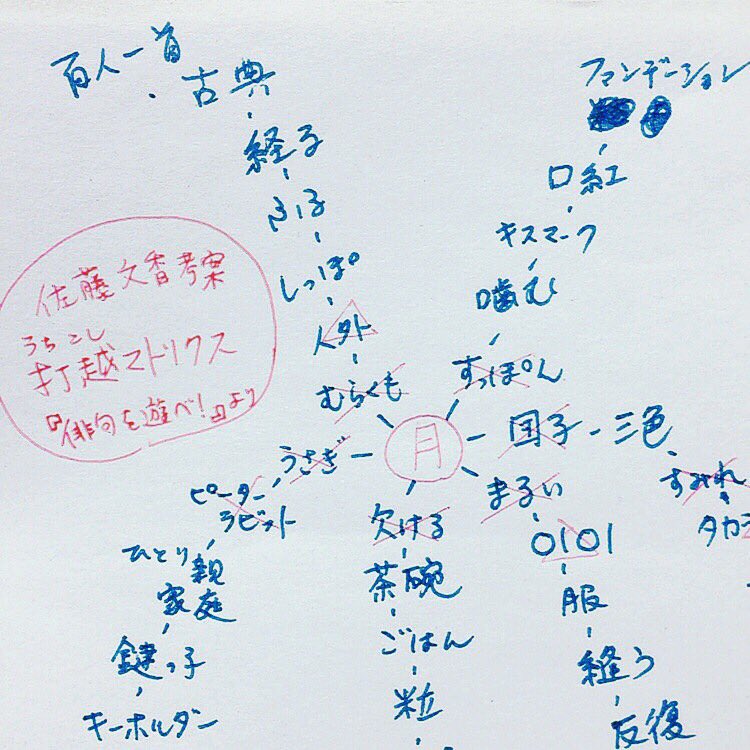 百人一首
古典
経る
しっぽ
人外
むらくも
ファンデーション
口紅
キスマーク
噛む
すっぽん
佐藤文香考案
うちこし
打越マトリクス
『俳句を遊べ!』より
月
団子
三色
すみれ
タカラ
うさぎ
ピーター
ラビット
ひとり親
家庭
鍵っ子
キーホルダー
欠ける
茶碗
ごはん
粒
まるい
0101
服
縫う
反復